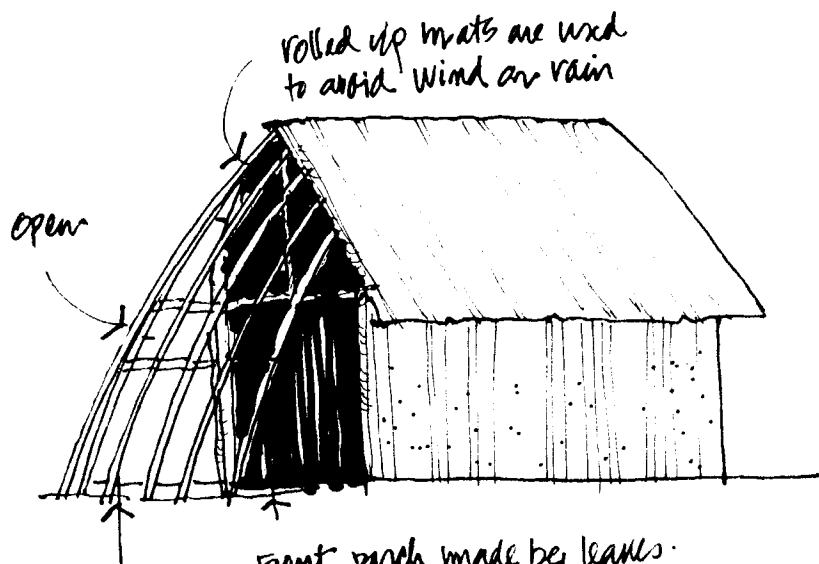 rolled up mats are used
to avoid wind or rain
open
Front porch made by leaves.